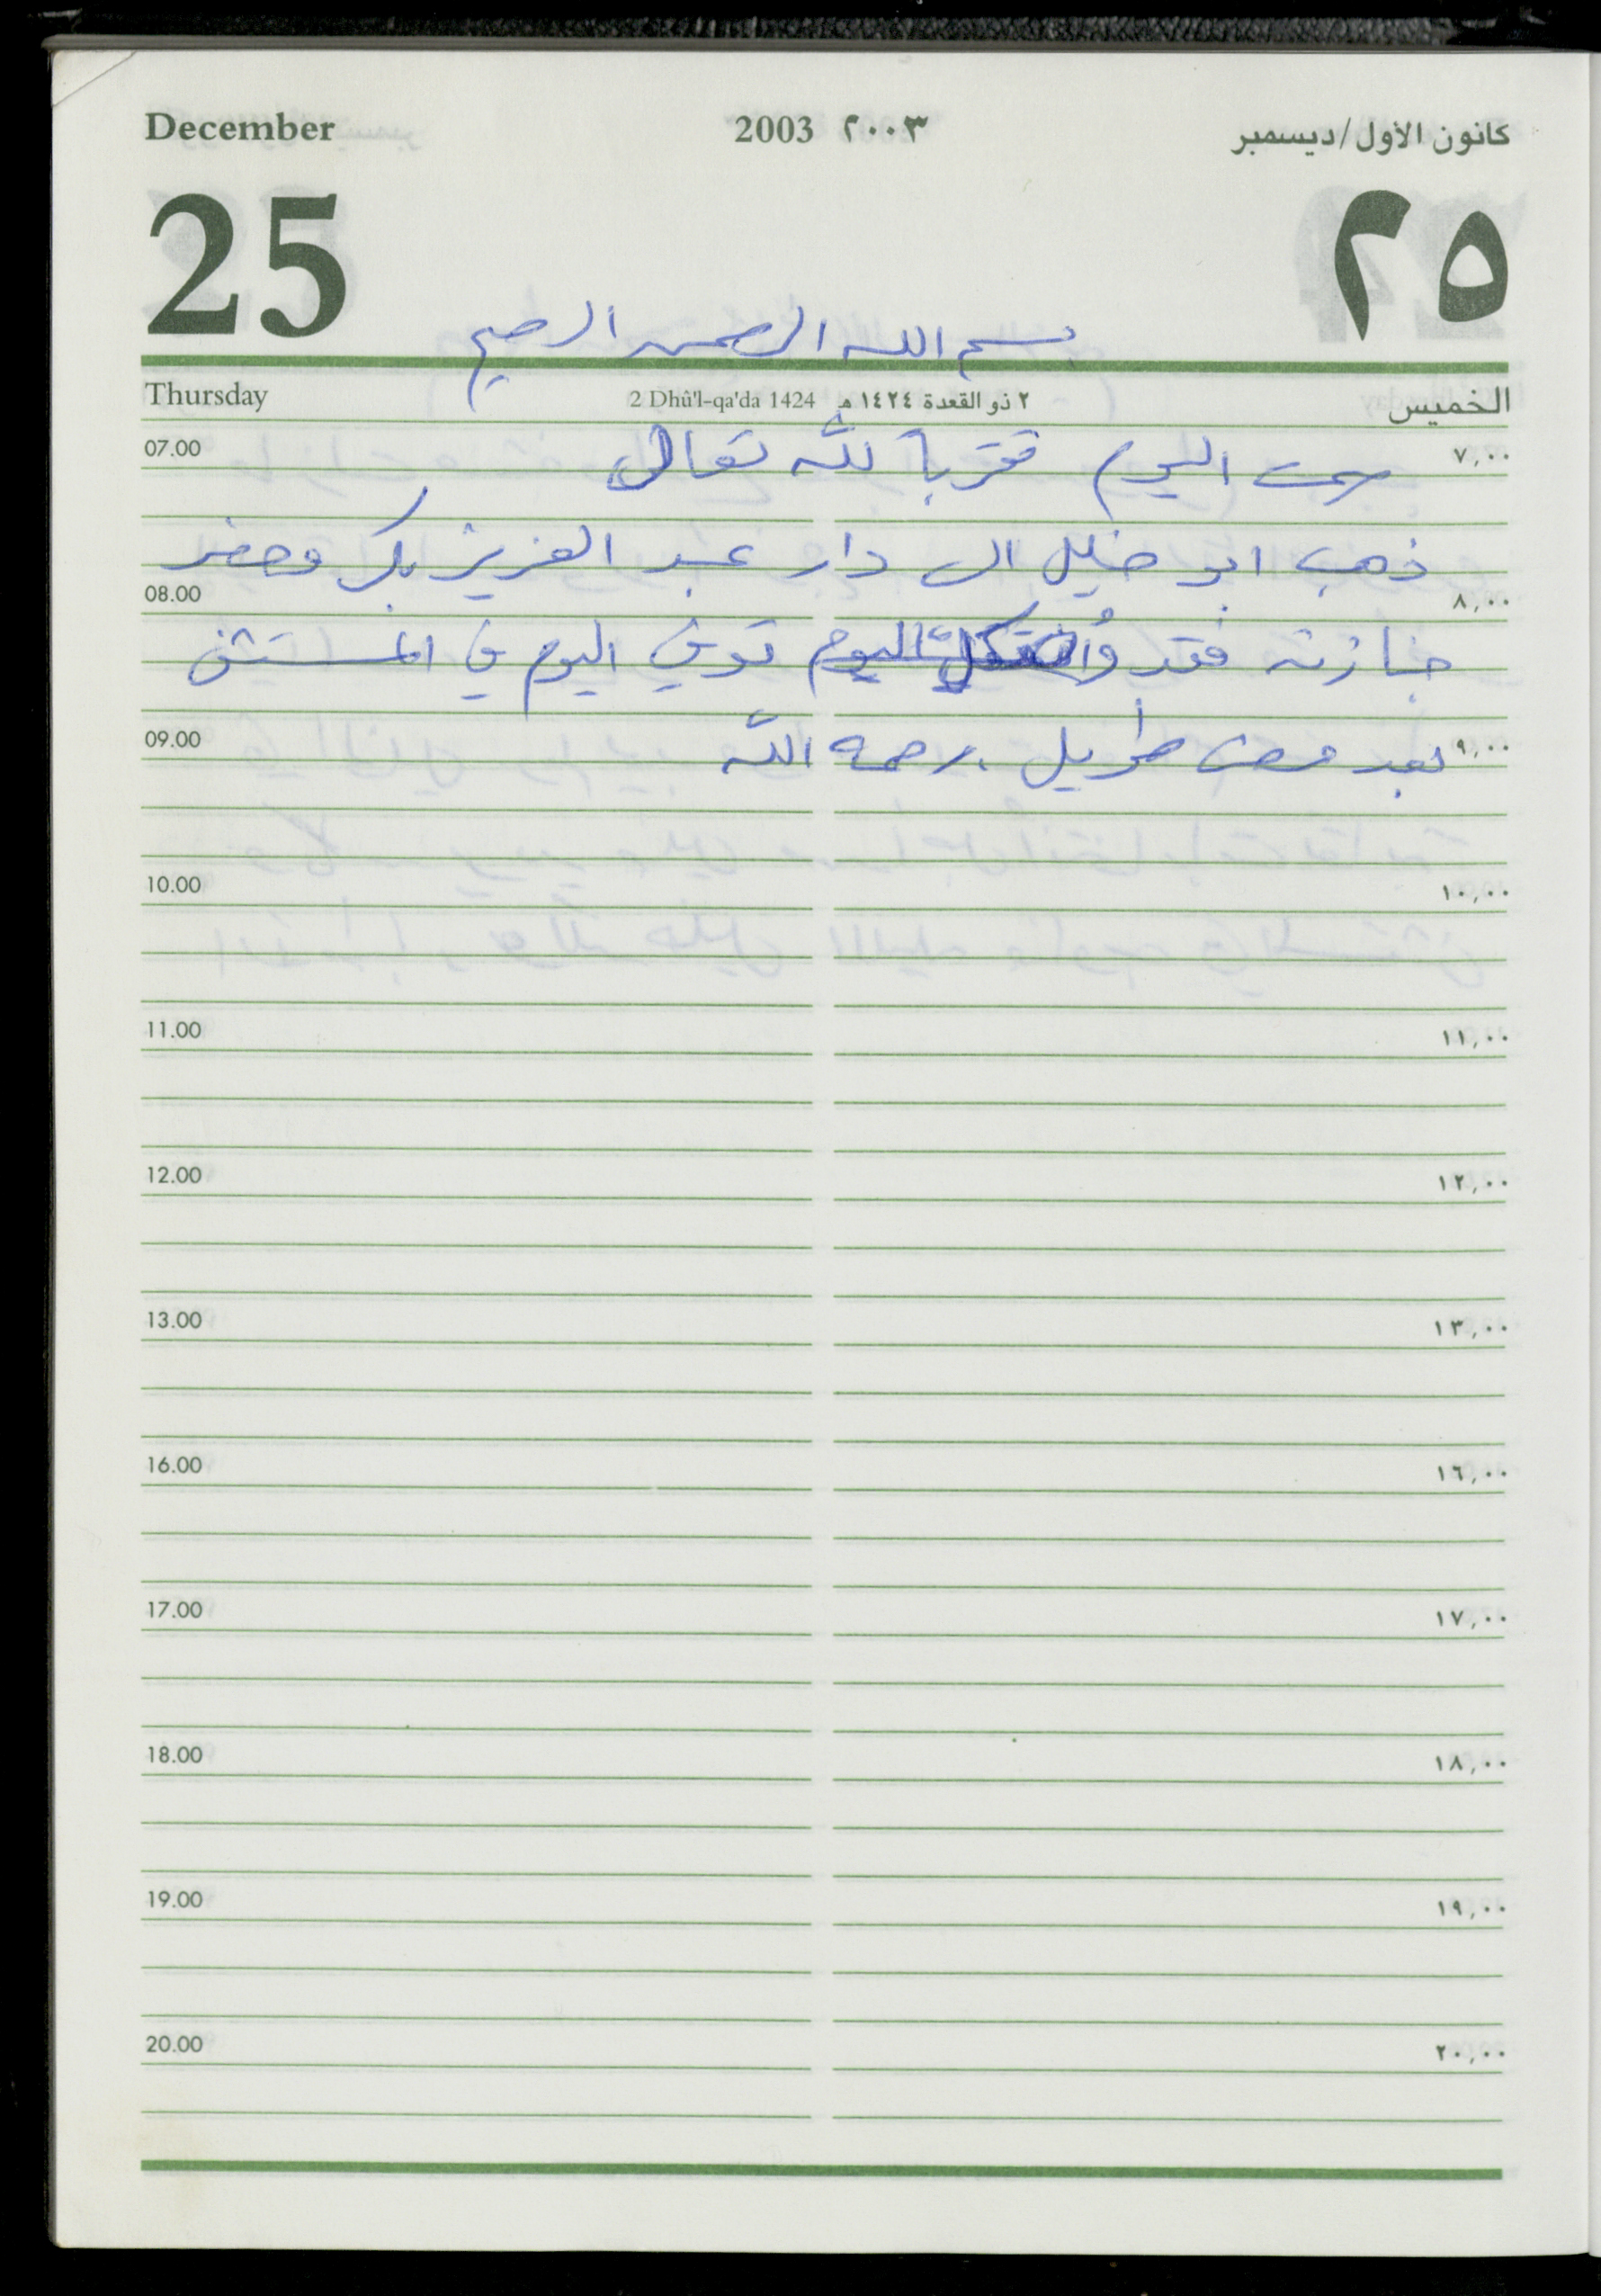 December 2003 ٢٠٠٣ كانون الأول/ديسمبر
25 ٢٥
بسم الله الرحمن الرحيم
Thursday 2 Dhû'l-qa'da 1424 ٢ ذو القعدة ١٤٢٤ هـ الخميس
07.00 صمت اليوم تقرباً لله تعالى ٧,٠٠
ذهب ابو خليل الى دار عبد العزيز بكر وحضر
08.00 ٨,٠٠
جنازته فقد توفي اليوم في المستشفى
09.00 بعد مرض طويل . رحمه الله ٩,٠٠
10.00 ١٠,٠٠
11.00 ١١,٠٠
12.00 ١٢,٠٠
13.00 ١٣,٠٠
16.00 ١٦,٠٠
17.00 ١٧,٠٠
18.00 ١٨,٠٠
19.00 ١٩,٠٠
20.00 ٢٠,٠٠